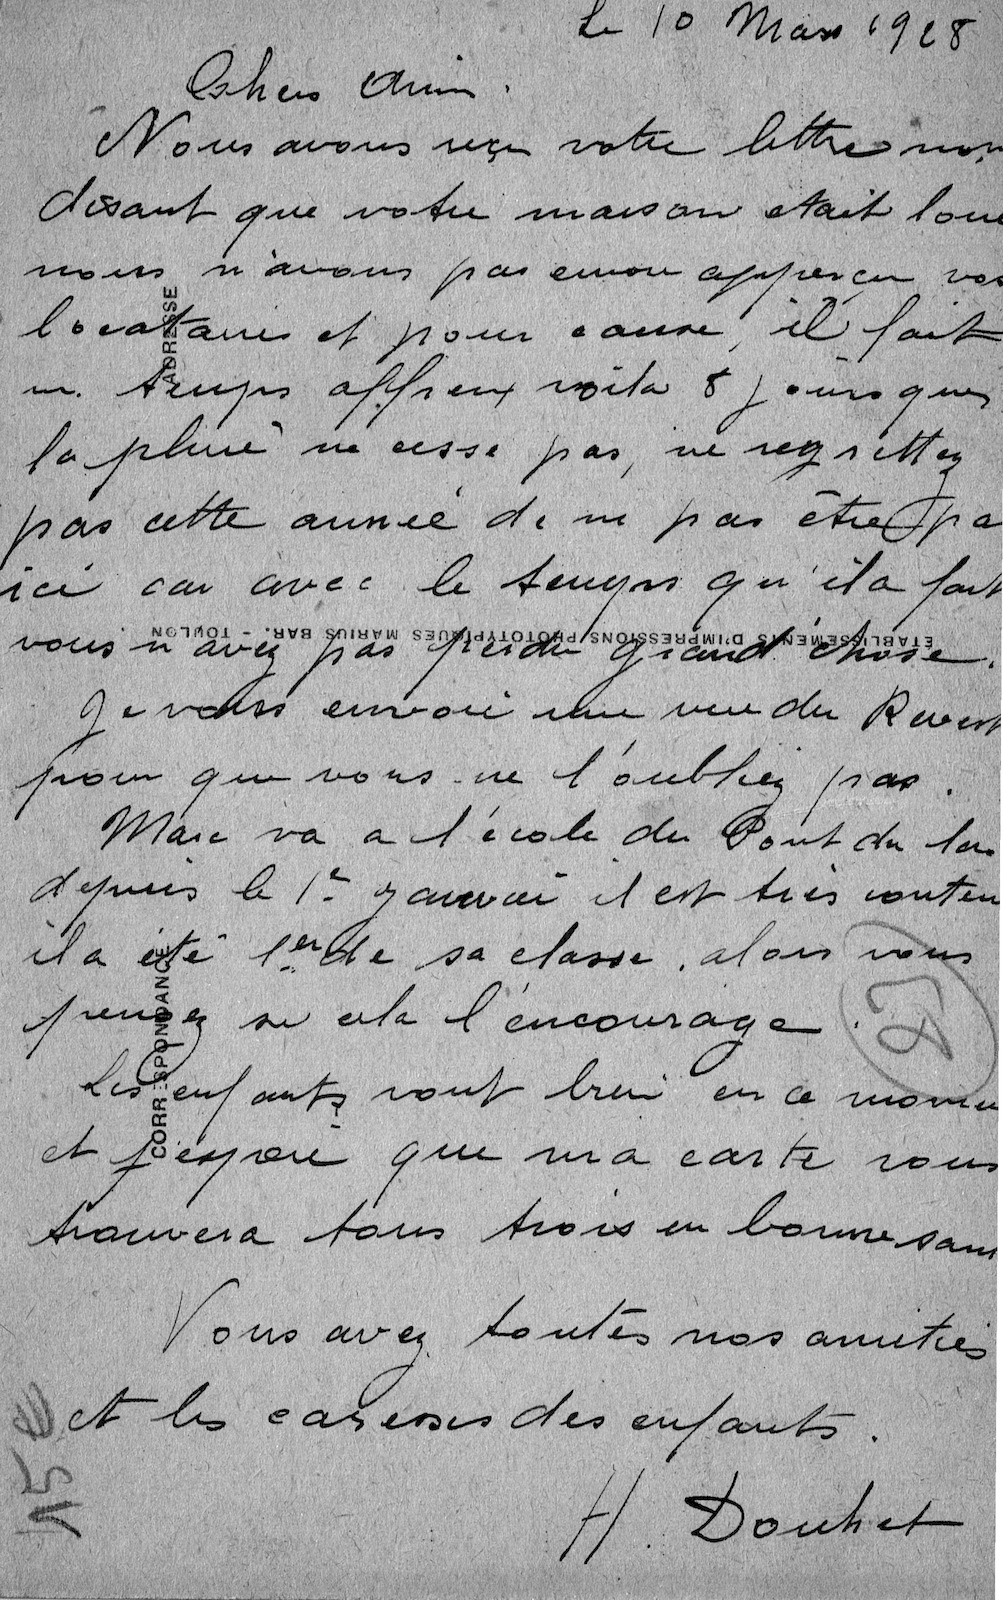 Le 10 Mars 1928
Chers Amis.
Nous avons reçu votre lettre nous
disant que votre maison etait loué
nous n'avons pas encore apperçu vos
locataires et pour cause, il fait
un temps affreux voila 8 jours que
la pluie ne cesse pas, ne regrettez
pas cette année de ne pas être pa
ici car avec le temps qu'il a fait
vous n'avez pas perdu grand chose.
Je vous envoie une vue du Revest
pour que vous ne l'oubliez pas.
Marc va a l'école du Pont du las
depuis le 1er janvier il est très conten
il a été 1er de sa classe, alors vous
pensez si cela l'encourage.
Les enfants vont bien en ce momen
et j'espere que ma carte vous
trouvera tous trois en bonne sant
Vous avez toutes nos amitiés
et les caresses des enfants.
H. Douhet
ADRESSE
CORRESPONDANCE
ETABLISSEMENTS D'IMPRESSIONS PHOTOTYPIQUES MARIUS BAR. - TOULON
15€